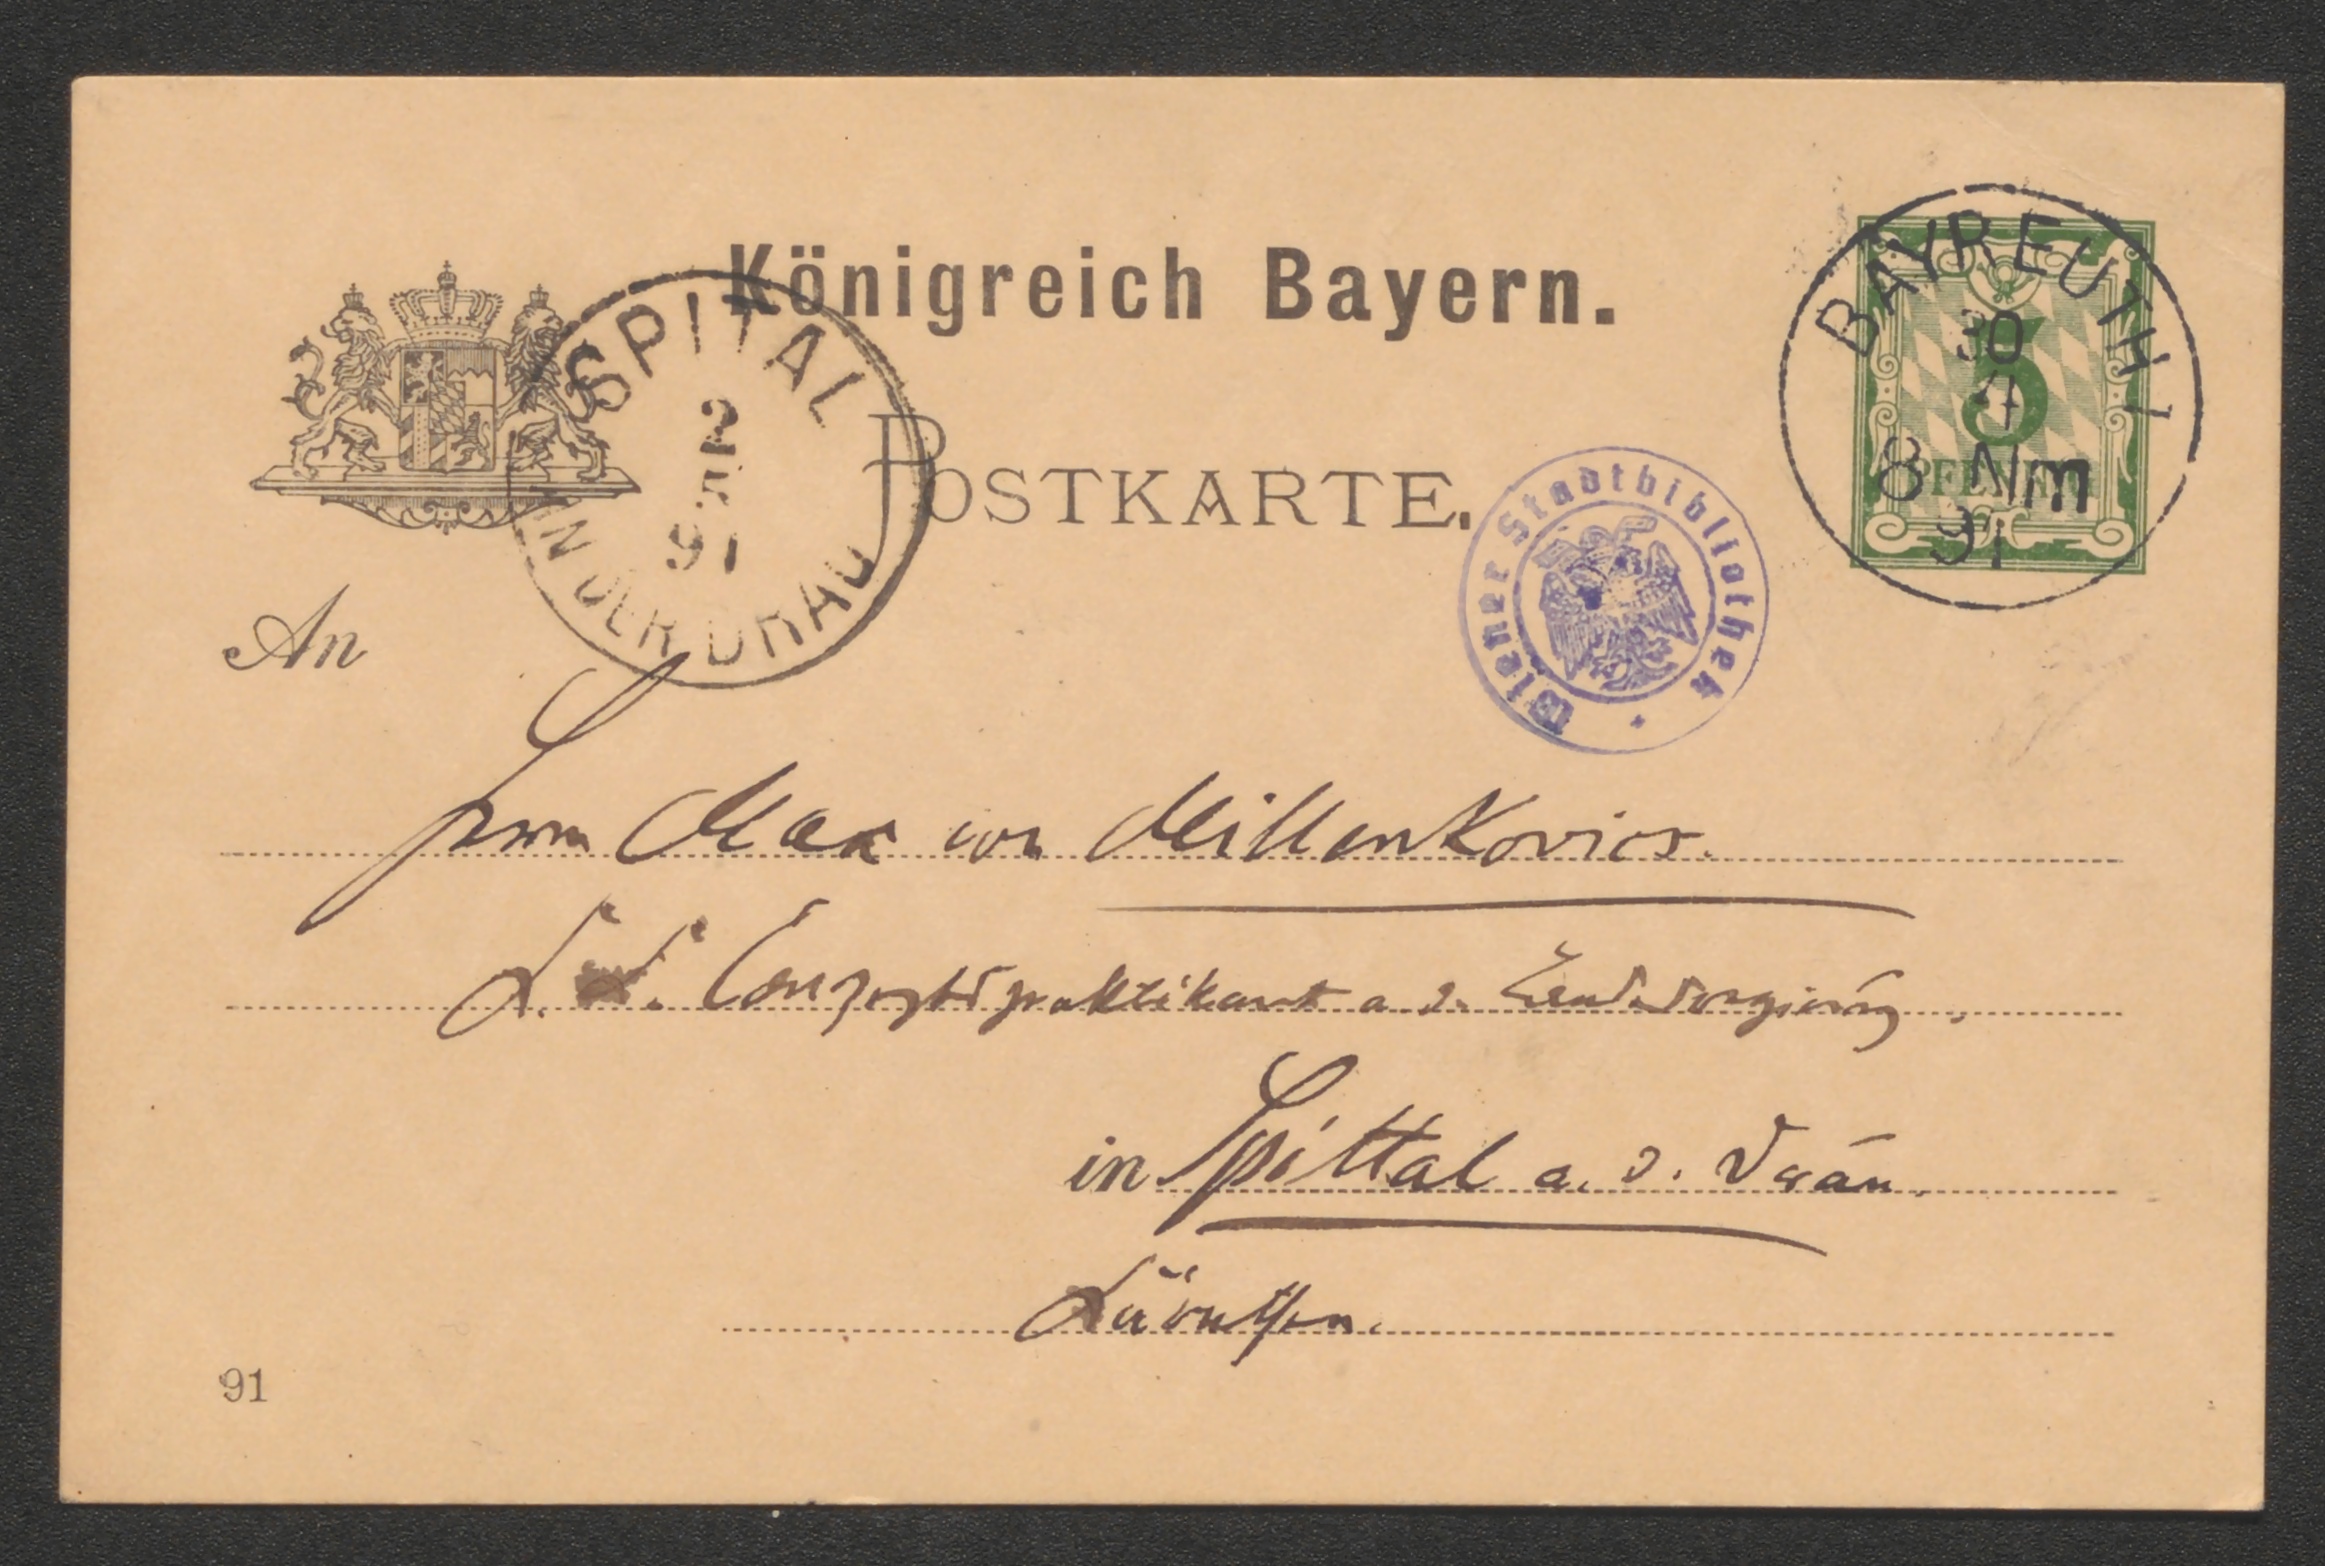 Königreich Bayern.
POSTKARTE.
SPITAL
2
5
91
AN DER DRAU
BAYREUTH I
30
4
8 Nm
91
5
PFENNIG
Wiener Stadtbibliothek
An
Herrn Max von Millenkovics.
K. K. Conzeptspraktikant a. d. Landesregierung.
in Spittal a. d. Drau.
Kärnthen.
91